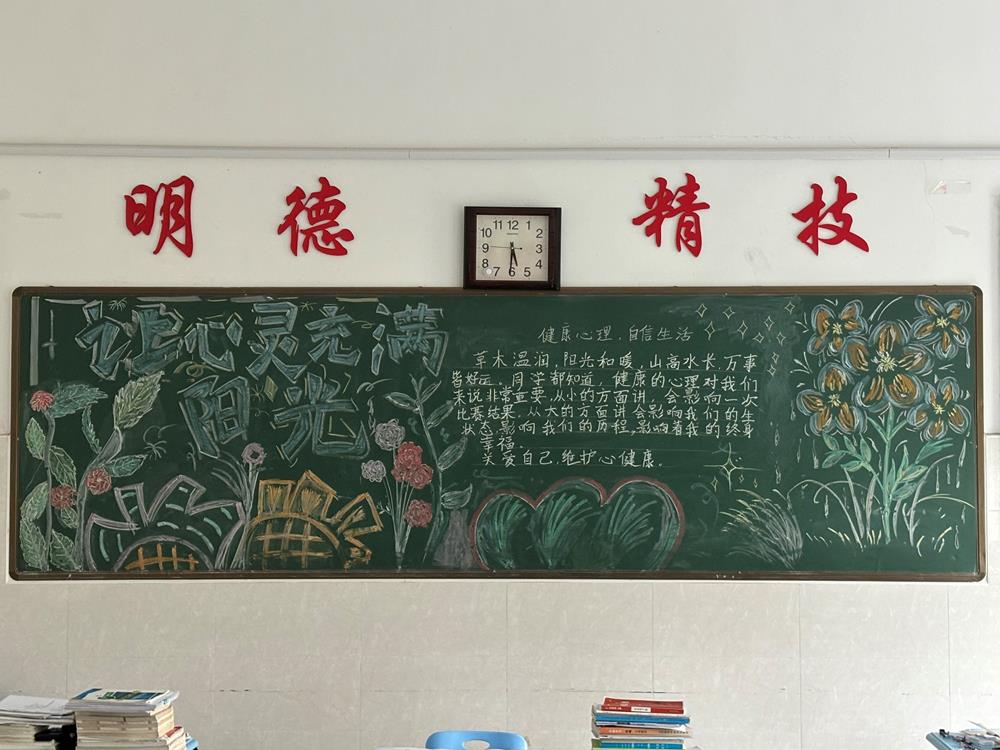 明德 精技
11 12 1
10 2
9 3
8 4
7 6 5
让心灵充满
阳光
健康心理，自信生活
草木温润，阳光和暖，山高水长，万事
皆好。同学都知道，健康的心理对我们
来说非常重要，从小的方面讲，会影响一次
比赛结果，从大的方面讲会影响我们的生
状态影响我们的历程，影响着我的终身
幸福。
关爱自己，维护心健康。